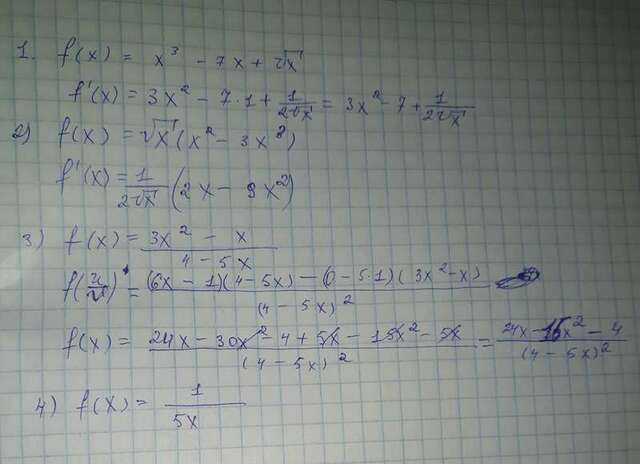 1. f(x) = x³ - 7x + √x
f'(x) = 3x² - 7·1 + 1/(2√x) = 3x² - 7 + 1/(2√x)
2) f(x) = √x (x² - 3x³)
f'(x) = 1/(2√x) (2x - 9x²)
3) f(x) = (3x² - x)/(4 - 5x)
f(u/v)' = ((6x - 1)(4 - 5x) - (0 - 5·1)(3x² - x))/(4 - 5x)²
f(x) = (24x - 30x² - 4 + 5x - 15x² - 5x)/(4 - 5x)² = (24x - 15x² - 4)/(4 - 5x)²
4) f(x) = 1/(5x)